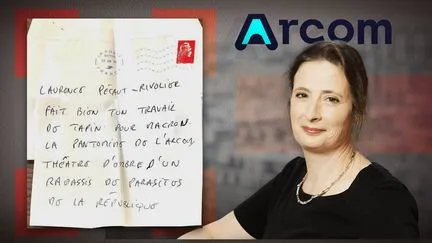 Arcom
LAURENCE PÉCAUT-RIVOLIER
FAIT BIEN TON TRAVAIL
DE TAPIN POUR MACRON.
LA PANTOMIME DE L'ARCOM
THÉÂTRE D'OMBRE D'UN
RAMASSIS DE PARASITES
DE LA RÉPUBLIQUE